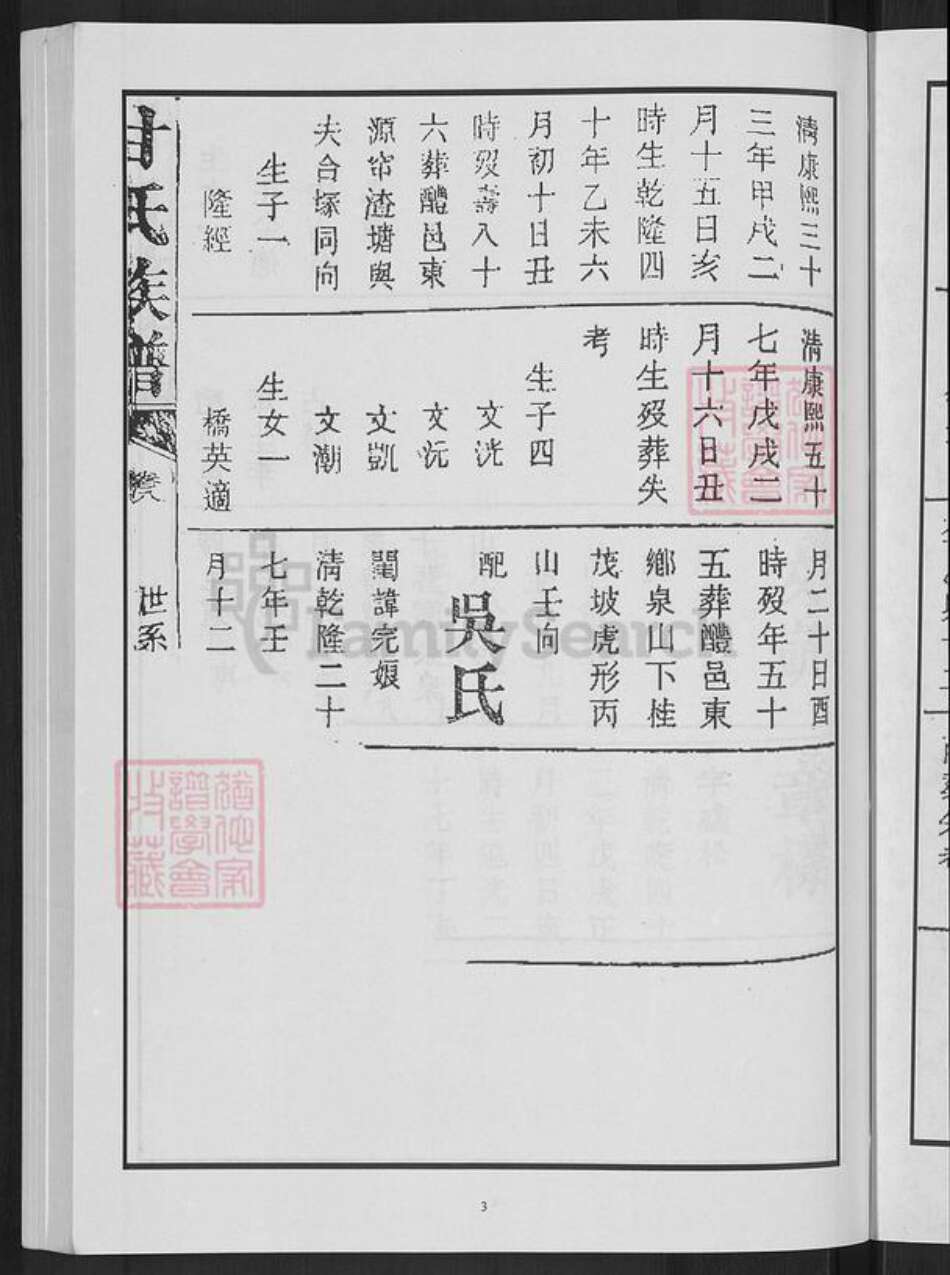 清康熙三十
三年甲戌二
月十五日亥
時生乾隆四
十年乙未六
月初十日丑
時歿壽八十
六葬醴邑東
源帘渣塘與
夫合塚同向
生子一
隆經
清康熙五十
七年戊戌二
月十六日丑
時生歿葬失
考
生子四
文洸
文沅
文凱
文潮
生女一
橋英適
月二十日酉
時歿年五十
五葬醴邑東
鄉泉山下桂
茂坡虎形丙
山壬向
配
吳氏
閨諱完娘
清乾隆二十
七年壬
月十二
甘氏族譜
世系
猶他家
譜學會
收藏
猶他家
譜學會
收藏
FamilySearch
3